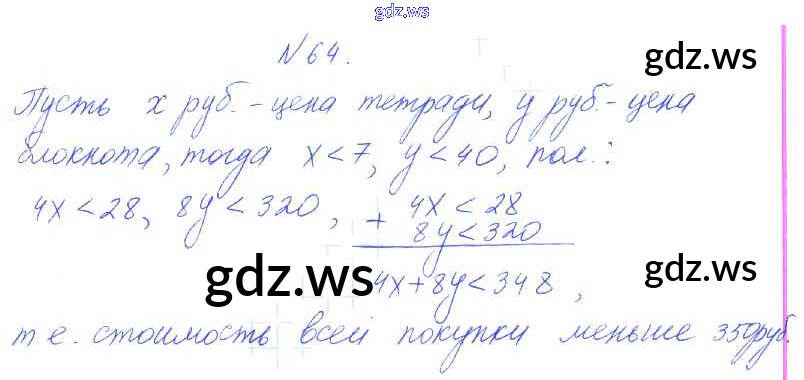 gdz.ws
№ 64.
gdz.ws
Пусть х руб. - цена тетради, у руб. - цена
блокнота, тогда х < 7, у < 40, пол.:
4х < 28, 8у < 320, + 4х < 28
8у < 320
gdz.ws
gdz.ws
4х + 8у < 348,
т.е. стоимость всей покупки меньше 350 руб.
gdz.ws